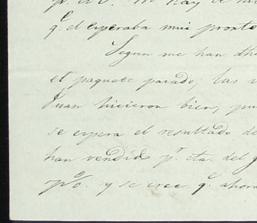 qe. el esperaba mui pronto
Segun me han dho
el paquete pasado, las
Juan hicieron bien, pu
se espera el resultado de
han vendido pr. cta. del g
po. y se cree qe. ahora